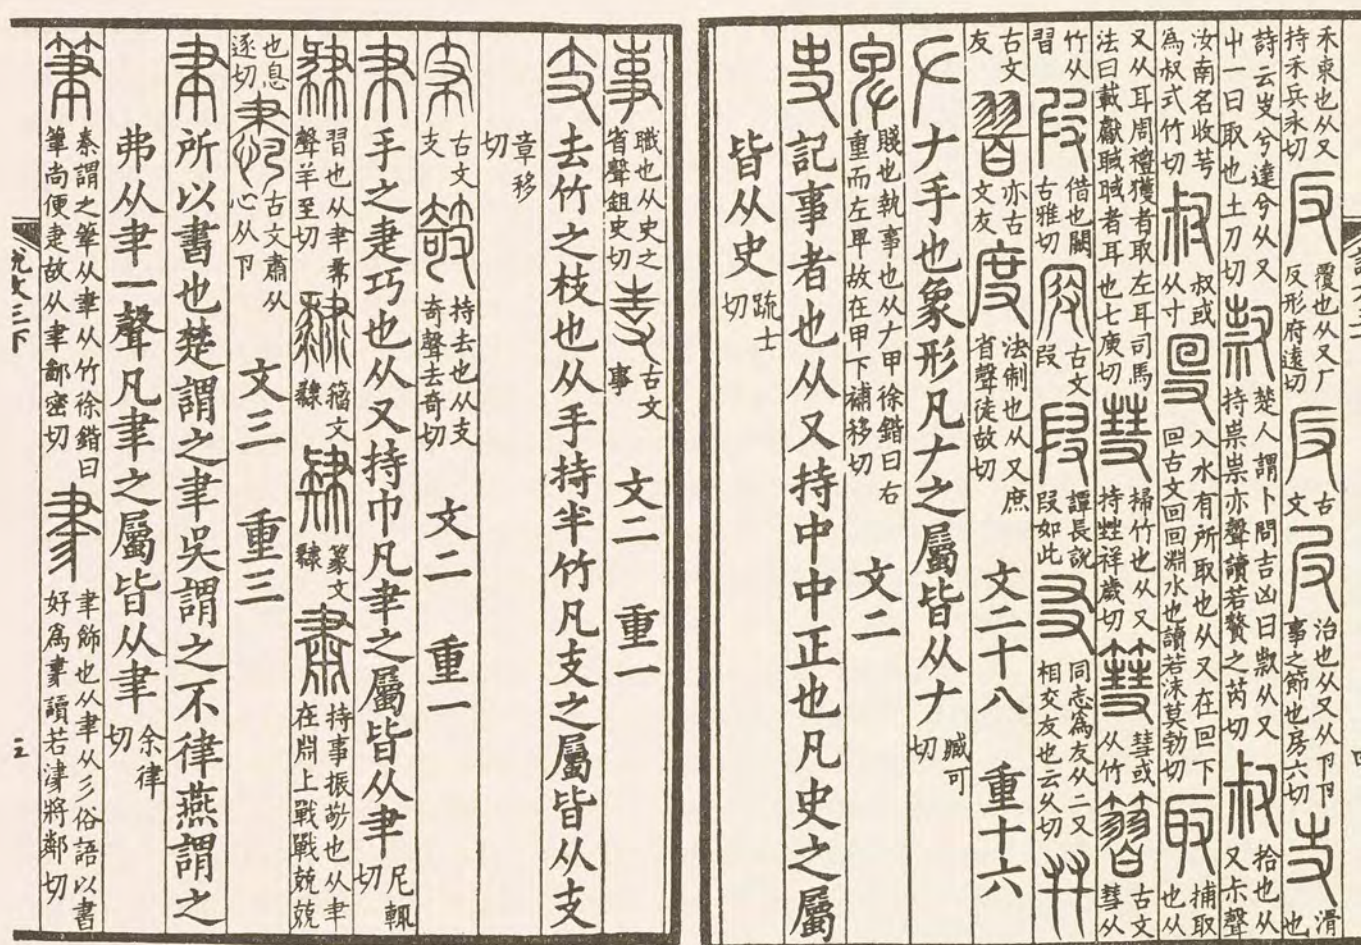 禾束也从又持禾兵永切 反 覆也从又厂反形府遠切 反 古文 𠬝 治也从又从卪卪事之節也房六切 𠬢 滑也
詩云𠬢兮達兮从又屮一曰取也土刀切 𣢧 楚人謂卜問吉凶曰𣢧从又持祟祟亦聲讀若贅之芮切 叔 拾也从又尗聲
汝南名收芌為叔式竹切 𡬧 叔或从寸 𠬸 入水有所取也从又在囘下囘古文回回淵水也讀若沫莫勃切 取 捕取也从
又从耳周禮獲者取左耳司馬法曰載獻聝聝者耳也七庾切 彗 掃竹也从又持甡祥歲切 篲 彗或从竹 古文彗从
竹从習 叚 借也闕古雅切 古文叚 叚 譚長說叚如此 友 同志為友从二又相交友也云久切
古文友 亦古文友 度 法制也从又庶省聲徒故切 文二十八 重十六
𠂇 𠂇手也象形凡𠂇之屬皆从𠂇 臧可切
卑 賤也執事也从𠂇甲徐鍇曰右重而左卑故在甲下補移切 文二
史 記事者也从又持中中正也凡史之屬
皆从史 疏士切
事 職也从史之省聲鉏史切 古文事 文二 重一
支 去竹之枝也从手持半竹凡支之屬皆从支
章移切
古文支 攲 持去也从支奇聲去奇切 文二 重一
𦘒 手之疌巧也从又持巾凡𦘒之屬皆从𦘒 尼輒切
肄 習也从𦘒㣇聲羊至切 籀文肄 篆文肄 肅 持事振敬也从𦘒在𣶒上戰戰兢兢
也息逐切 古文肅从心从卪 文三 重三
聿 所以書也楚謂之聿吳謂之不律燕謂之
弗从𦘒一聲凡聿之屬皆从聿 余律切
筆 秦謂之筆从聿从竹徐鍇曰筆尚便疌故从聿鄙密切 𦘔 聿飾也从聿从彡俗語以書好為𦘔讀若津將鄰切
說文三下